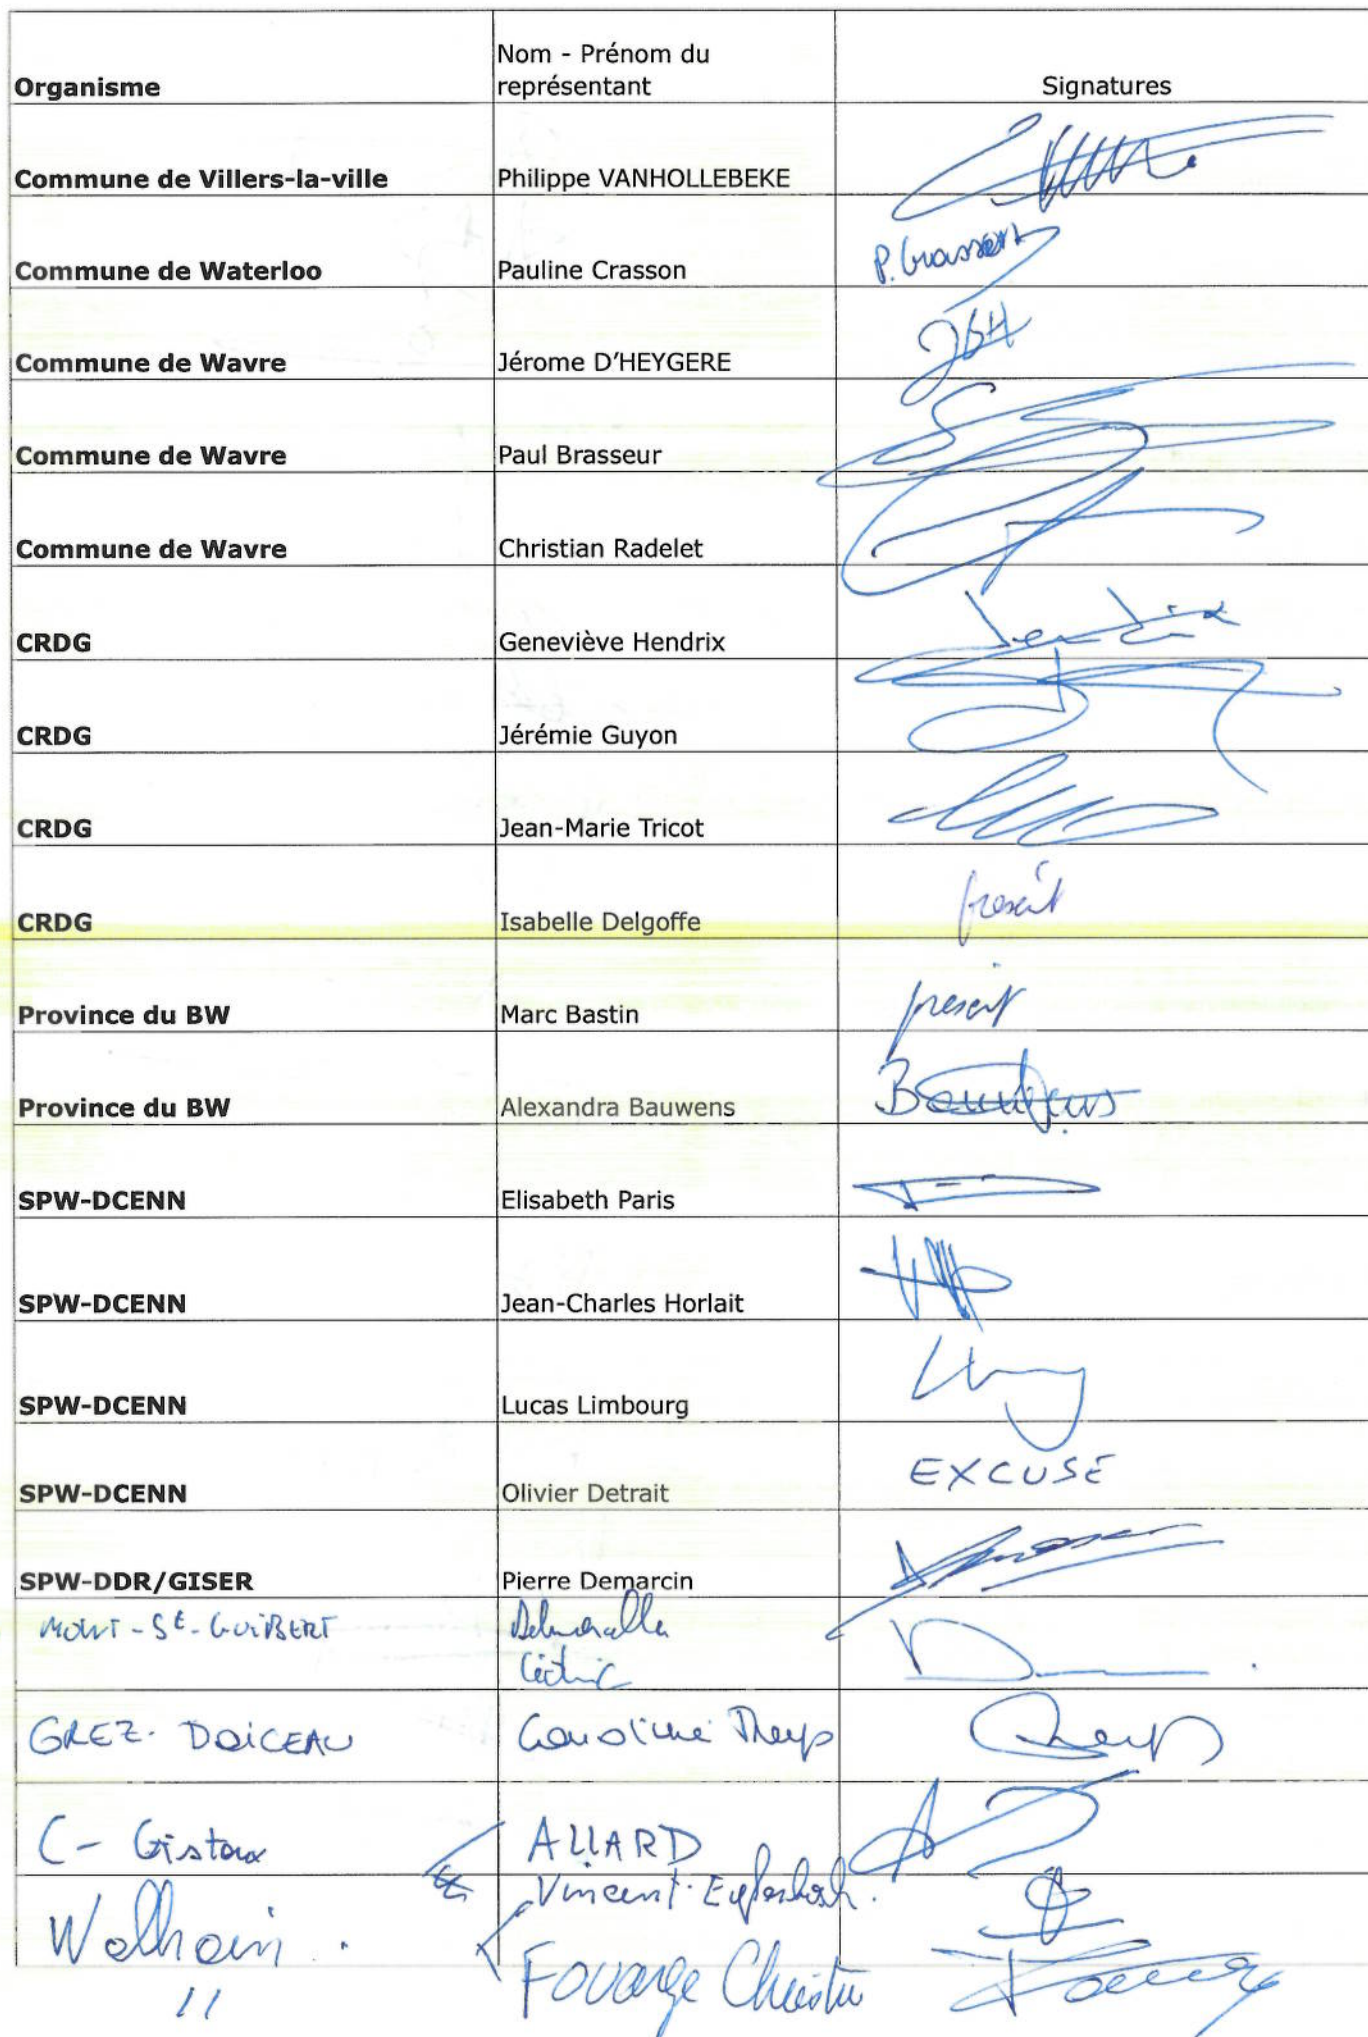 Organisme Nom - Prénom du représentant Signatures
Commune de Villers-la-ville Philippe VANHOLLEBEKE
Commune de Waterloo Pauline Crasson P. Crasson
Commune de Wavre Jérome D'HEYGERE
Commune de Wavre Paul Brasseur
Commune de Wavre Christian Radelet
CRDG Geneviève Hendrix Hendrix
CRDG Jérémie Guyon
CRDG Jean-Marie Tricot
CRDG Isabelle Delgoffe present
Province du BW Marc Bastin present
Province du BW Alexandra Bauwens Bauwens
SPW-DCENN Elisabeth Paris
SPW-DCENN Jean-Charles Horlait
SPW-DCENN Lucas Limbourg
SPW-DCENN Olivier Detrait EXCUSE
SPW-DDR/GISER Pierre Demarcin
MONT-St-GUIBERT Cédric
GREZ-DOICEAU Caroline Theys
C- Gistoux ALLARD
Walhain. Vincent
11 Fouarge